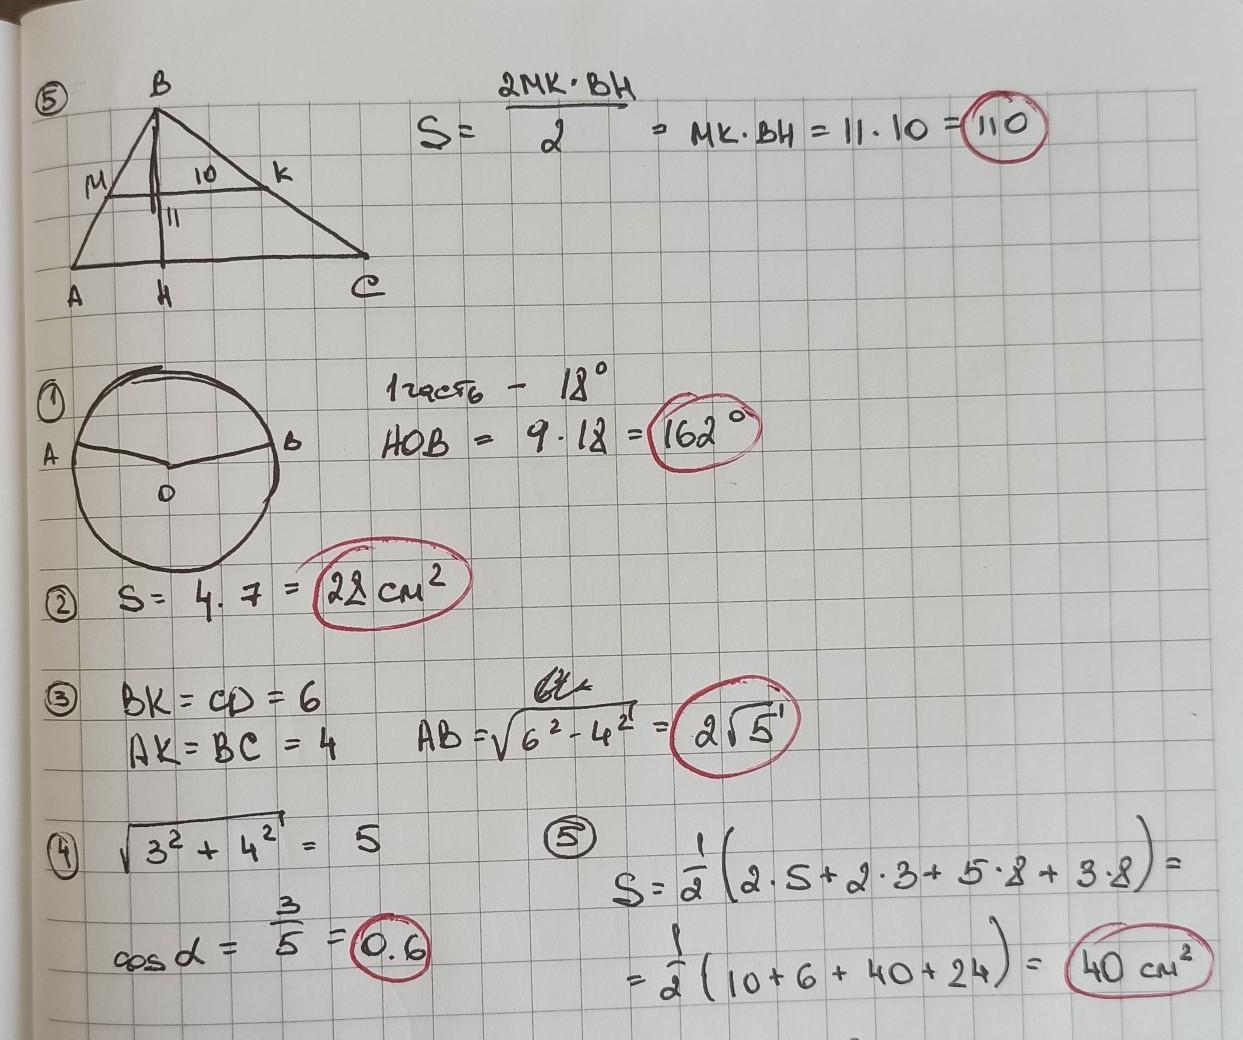 ⑤
B
M 10 K
11
A H C
S = 2MK·BH / 2 = MK·BH = 11·10 = 110
①
A B
O
1 часть - 18°
AOB = 9·18 = 162°
② S = 4·7 = 28 см²
③ BK = CD = 6
AK = BC = 4
AB = √(6² - 4²) = 2√5
④ √(3² + 4²) = 5
cos α = 3/5 = 0.6
⑤
S = 1/2 (2·5 + 2·3 + 5·8 + 3·8) =
= 1/2 (10 + 6 + 40 + 24) = 40 см²